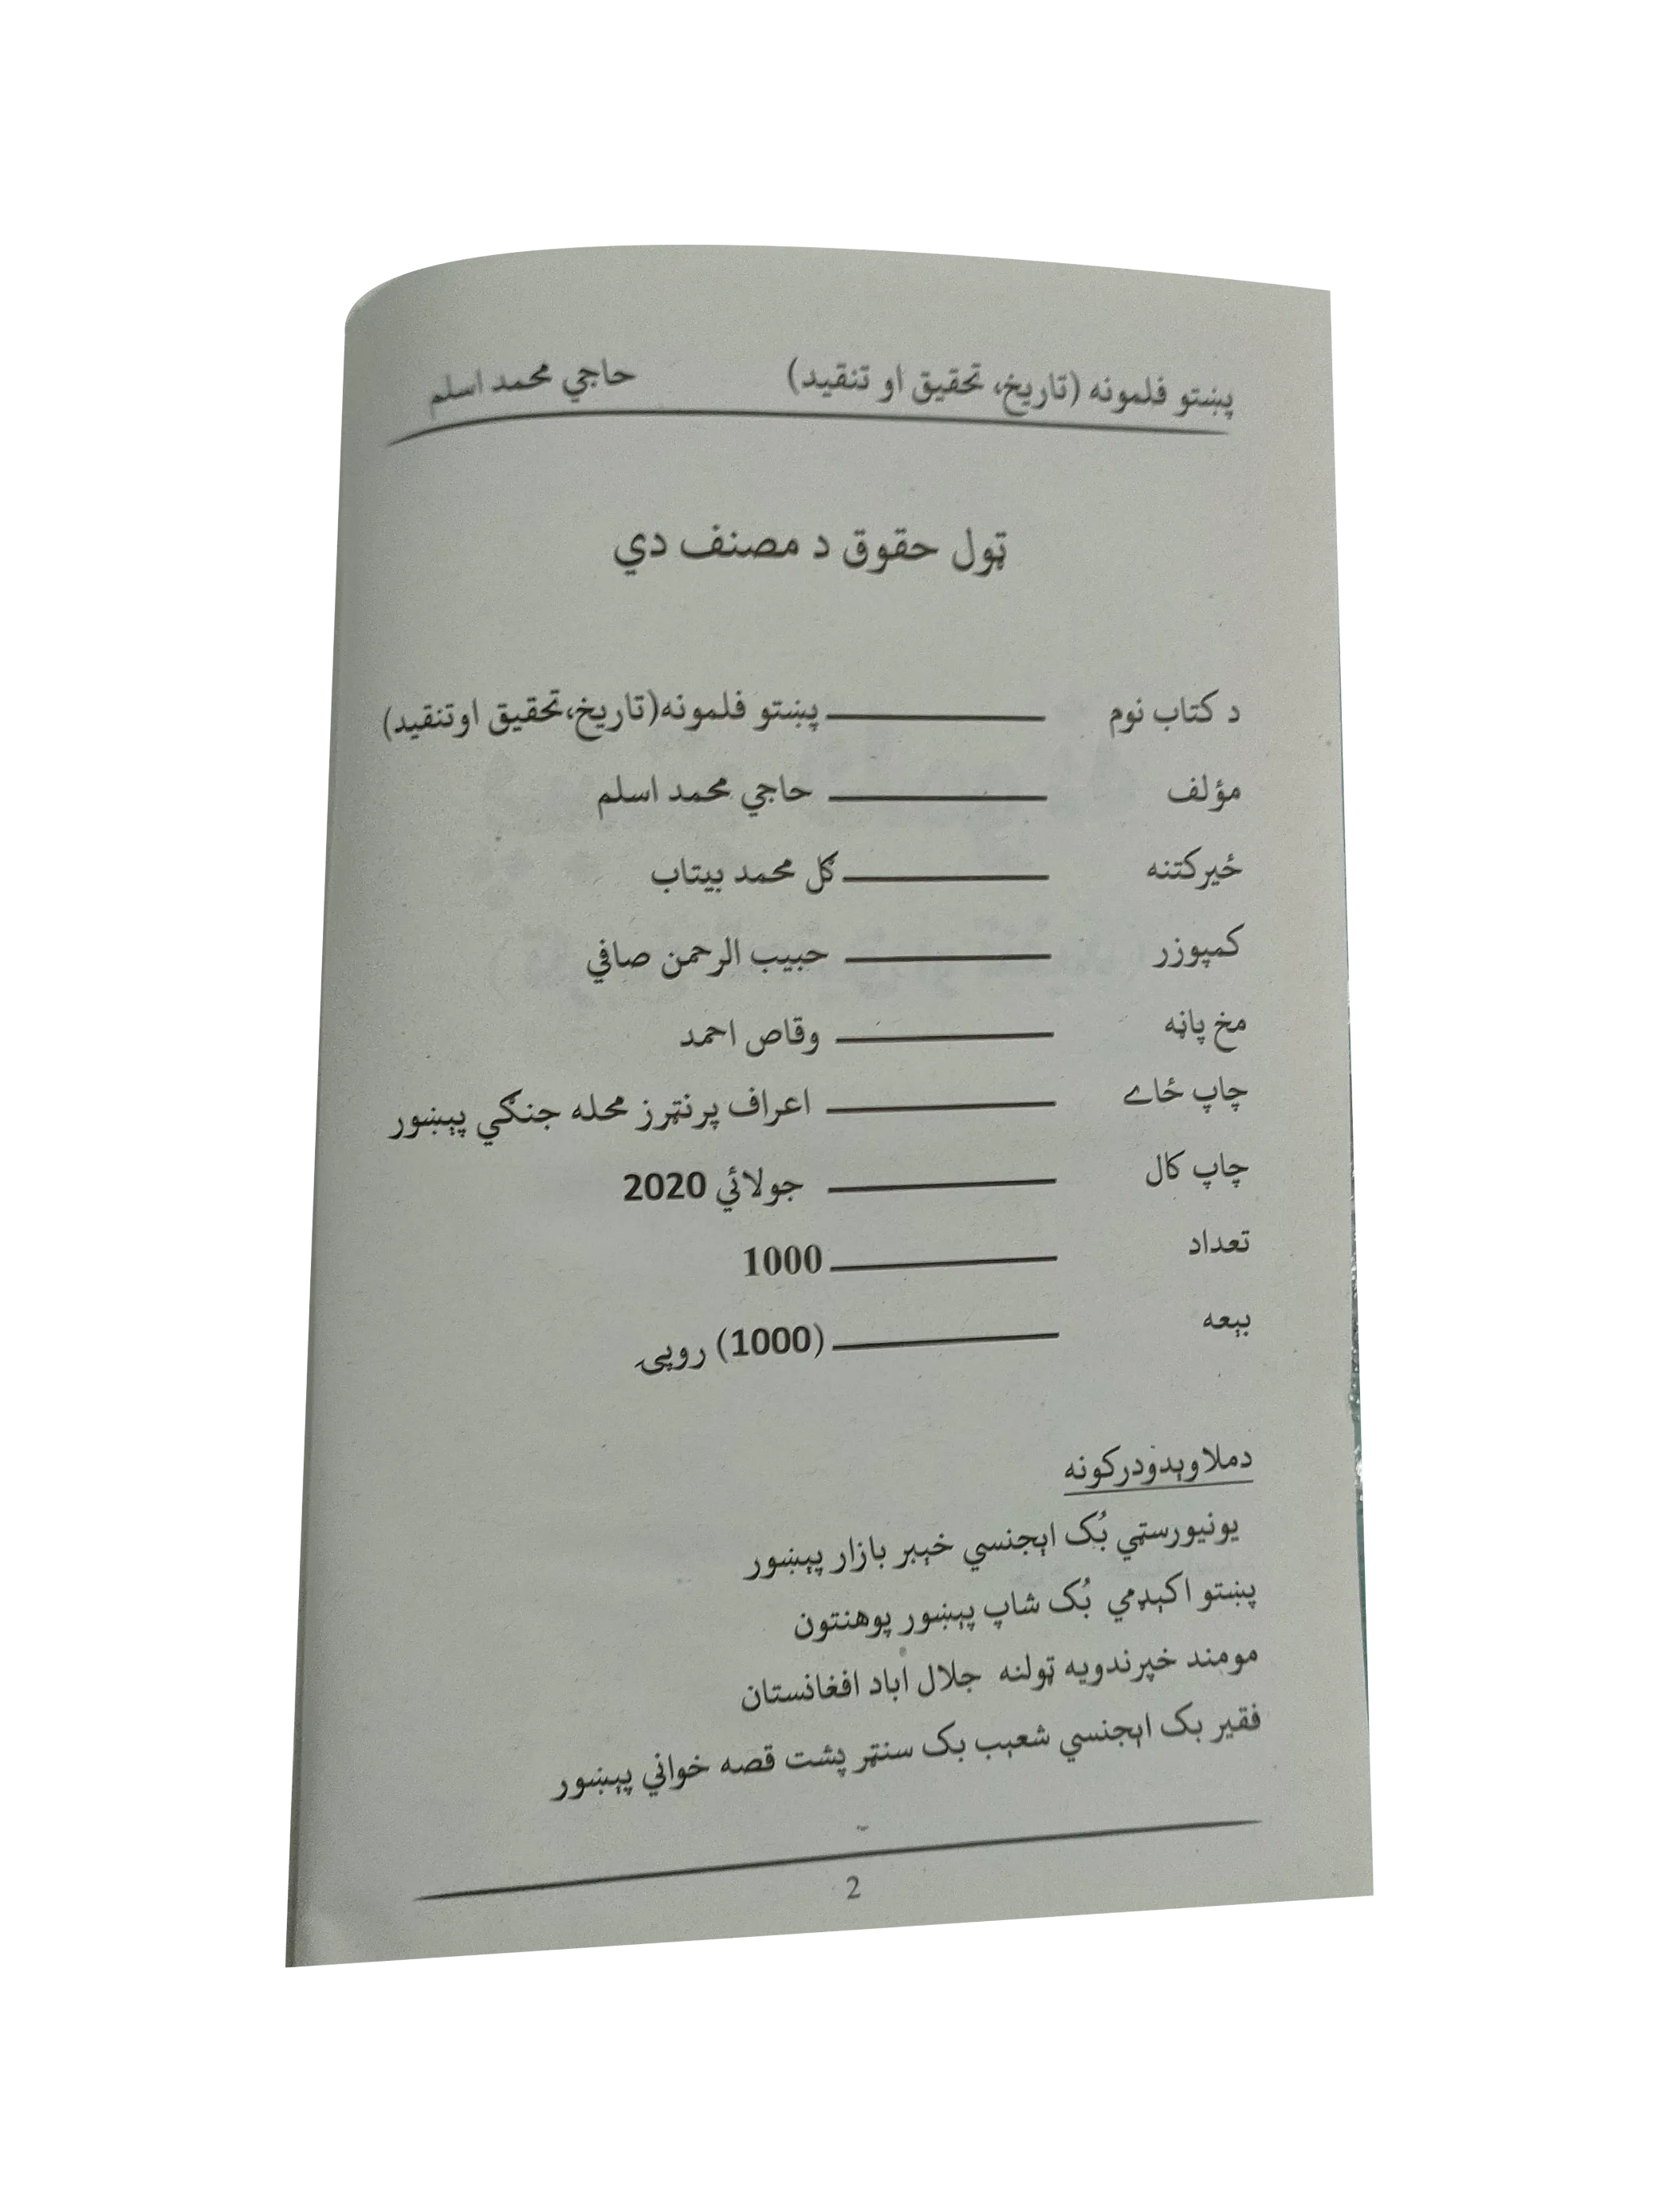 پښتو فلمونه (تاریخ، تحقیق او تنقید) حاجي محمد اسلم
ټول حقوق د مصنف دي
د کتاب نوم ــــــــــــ پښتو فلمونه(تاریخ،تحقیق اوتنقید)
مؤلف ــــــــــــ حاجي محمد اسلم
ځیرکتنه ــــــــــــ ګل محمد بیتاب
کمپوزر ــــــــــــ حبیب الرحمن صافي
مخ پاڼه ــــــــــــ وقاص احمد
چاپ ځاے ــــــــــــ اعراف پرنټرز محله جنګي پېښور
چاپ کال ــــــــــــ جولائي 2020
تعداد ــــــــــــ 1000
بېعه ــــــــــــ (1000) روپۍ
دملاوېدودرکونه
یونیورسټي بُک اېجنسي خېبر بازار پېښور
پښتو اکېډمي بُک شاپ پېښور پوهنتون
مومند خپرندویه ټولنه جلال اباد افغانستان
فقیر بک اېجنسي شعېب بک سنټر پشت قصه خواني پېښور
2